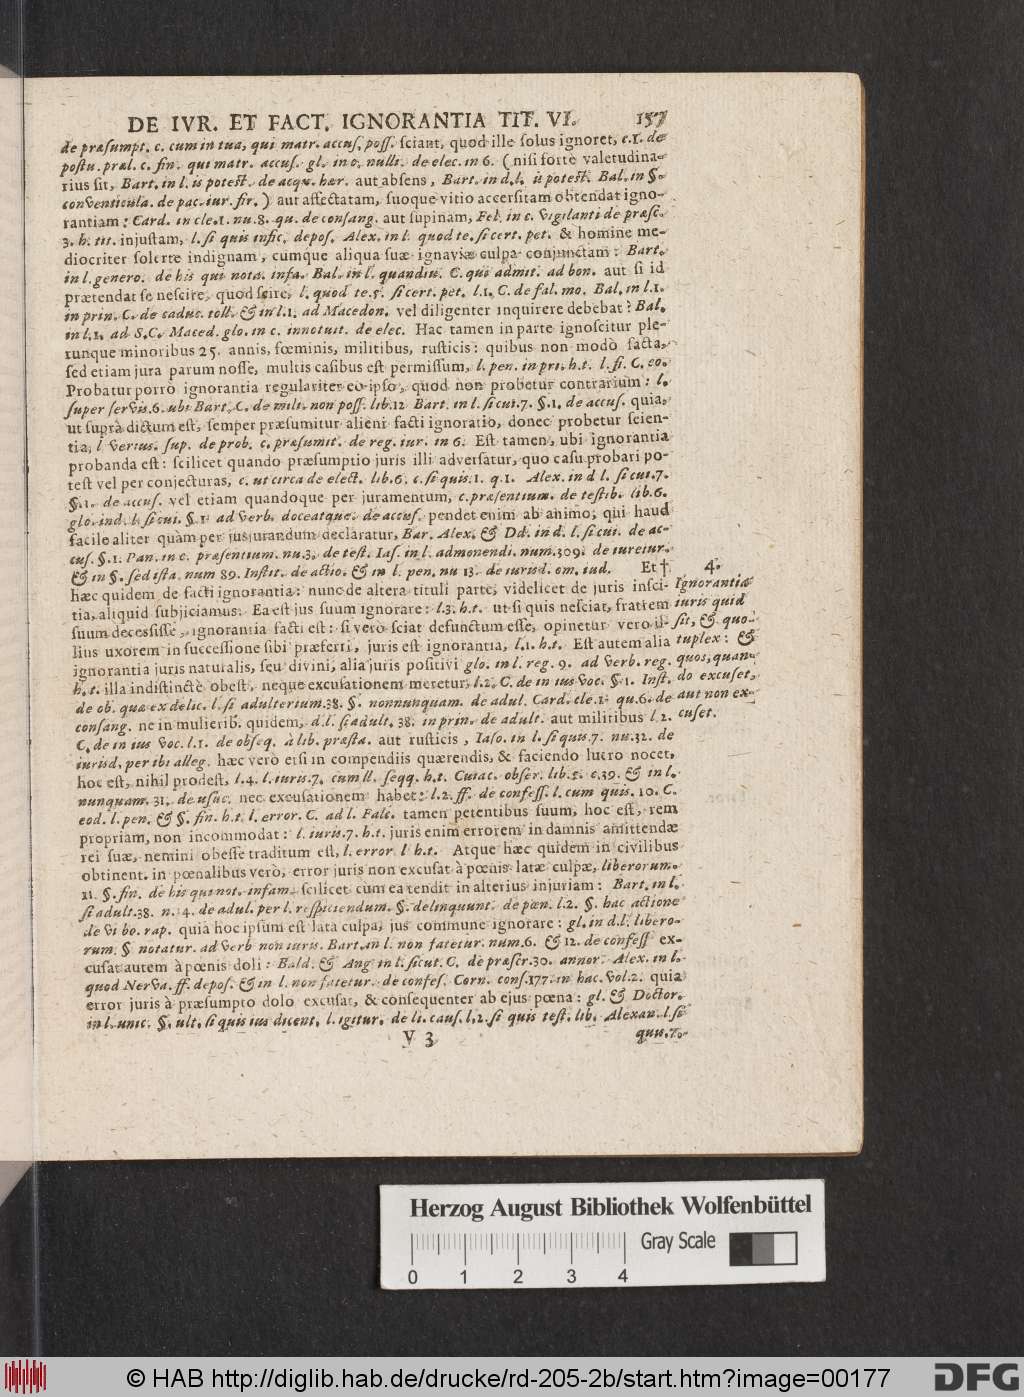 DE IVR. ET FACT. IGNORANTIA TIT. VI. 157
de præsumpt. c. cum in tua, qui matr. accus. poss. sciant, quod ille solus ignoret, c. 1. de
postu. præl. c. fin. qui matr. accus. gl. in c. nulli. de elec. in 6. (nisi forte valetudina-
rius sit, Bart. in l. is potest. de acqu. hær. aut absens, Bart. in d. l. is potest. Bal. in §.
conventicula. de pac. iur. fir.) aut affectatam, suoque vitio accersitam obtendat igno-
rantiam: Card. in cle. 1. nu. 8. qu. de consang. aut supinam, Fel. in c. vigilanti de præsc.
3. h. tit. injustam, l. si quis infic. depos. Alex. in l. quod te. si cert. pet. & homine me-
diocriter solerte indignam, cumque aliqua suæ ignaviæ culpa conjunctam: Bart.
in l. genero. de his qui nota. infa. Bal. in l. quandiu. C. qui admit. ad bon. aut si id
prætendat se nescire, quod scire, l. quod te. 5. si cert. pet. l. 1. C. de fal. mo. Bal. in l. 1.
in prin. C. de caduc. toll. & in l. 1. ad Macedon. vel diligenter inquirere debebat? Bal.
in l. 1. ad S. C. Maced. glo. in c. innotuit. de elec. Hac tamen in parte ignoscitur ple-
runque minoribus 25. annis, fœminis, militibus, rusticis: quibus non modò facta,
sed etiam jura parum nosse, multis casibus est permissum, l. pen. in pri. h. t. l. fi. C. eo.
Probatur porrò ignorantia regulariter eo ipso, quod non probetur contrarium: l.
super servis. 6. ubi Bart. C. de mili. non poss. lib. 12 Bart. in l. si cui. 7. §. 1. de accus. quia,
ut suprà dictum est, semper præsumitur alieni facti ignoratio, donec probetur scien-
tia, l verius. sup. de prob. c. præsumit. de reg. iur. in 6. Est tamen, ubi ignorantia
probanda est: scilicet quando præsumptio juris illi adversatur, quo casu probari po-
test vel per conjecturas, c. ut circa de elect. lib. 6. c. si quis. 1. q. 1. Alex. in d l. si cui. 7.
§. 1. de accus. vel etiam quandoque per juramentum, c. præsentium. de testib. lib. 6.
glo. in d. l. si cui. §. 1. ad verb. doceatque. de accus. pendet enim ab animo; qui haud
facile aliter quàm per jusjurandum declaratur, Bar. Alex. & Dd. in d. l. si cui. de ac-
cus. §. 1. Pan. in c. præsentium. nu. 3. de test. Ias. in l. admonendi. num. 309. de iureiur.
& in §. sed ista. num 89. Instit. de actio. & in l. pen. nu 13. de iurisd. om. iud. Et †
hæc quidem de facti ignorantia: nunc de altera tituli parte, videlicet de juris insci-
tia, aliquid subjiciamus. Ea est jus suum ignorare: l. 3. h. t. ut si quis nesciat, fratrem
suum decessisse, ignorantia facti est: si verò sciat defunctum esse, opinetur verò il-
lius uxorem in successione sibi præferri, juris est ignorantia, l. 1. h. t. Est autem alia
ignorantia juris naturalis, seu divini, alia juris positivi glo. in l. reg. 9. ad verb. reg.
h. t. illa indistinctè obest, neque excusationem meretur, l. 2. C. de in ius voc. §. 1. Inst.
de ob. quæ ex delic. l. si adulterium. 38. §. nonnunquam. de adul. Card. cle. 1. qu. 6. de
consang. ne in mulierib. quidem, d. l. si adult. 38. in prin. de adult. aut militibus l 2.
C. de in ius voc. l. 1. de obseq. à lib. præsta. aut rusticis, Iaso. in l. si quis. 7. nu. 32. de
iurisd. per ibi alleg. hæc verò etsi in compendiis quærendis, & faciendo lucro nocet,
hoc est, nihil prodest, l. 4. l. iuris. 7. cum ll. seqq. h. t. Cuiac. obser. lib. 5. c. 39. & in l.
nunquam. 31. de usuc. nec excusationem habet: l. 2. ff. de confess. l. cum quis. 10. C.
eod. l. pen. & §. fin. h. t. l. error. C. ad l. Falc. tamen petentibus suum, hoc est, rem
propriam, non incommodat: l. iuris. 7. h. t. juris enim errorem in damnis amittendæ
rei suæ, nemini obesse traditum est, l. error. l h. t. Atque hæc quidem in civilibus
obtinent. in pœnalibus verò, error juris non excusat à pœnis latæ culpæ, liberorum.
11. §. fin. de his qui not. infam. scilicet cum ea tendit in alterius injuriam: Bart. in l.
si adult. 38. n. 4. de adul. per l. respiciendum. §. delinquunt. de pœn. l. 2. §. hac actione
de vi bo. rap. quia hoc ipsum est lata culpa, jus commune ignorare: gl. in d. l. libero-
rum. § notatur. ad verb non iuris. Bart. in l. non fatetur. num. 6. & 12. de confess ex-
cusat autem à pœnis doli: Bald. & Ang in l. sicut. C. de præscr. 30. annor. Alex. in l.
quod Nerva. ff. depos. & in l. non fatetur. de confes. Corn. cons. 177. in hac. vol. 2. quia
error juris à præsumpto dolo excusat, & consequenter ab ejus pœna: gl. & Doctor.
in l. unic. §. ult. si quis ius dicent. l. igitur. de li. caus. l. 2. si quis test. lib. Alexan. l. si
V 3 quis. 7.
4.
Ignorantia
iuris quid
sit, & quo-
tuplex: &
quos, quan-
do excuset,
aut non ex-
cuset.
Herzog August Bibliothek Wolfenbüttel
Gray Scale
0 1 2 3 4
© HAB http://diglib.hab.de/drucke/rd-205-2b/start.htm?image=00177
DFG